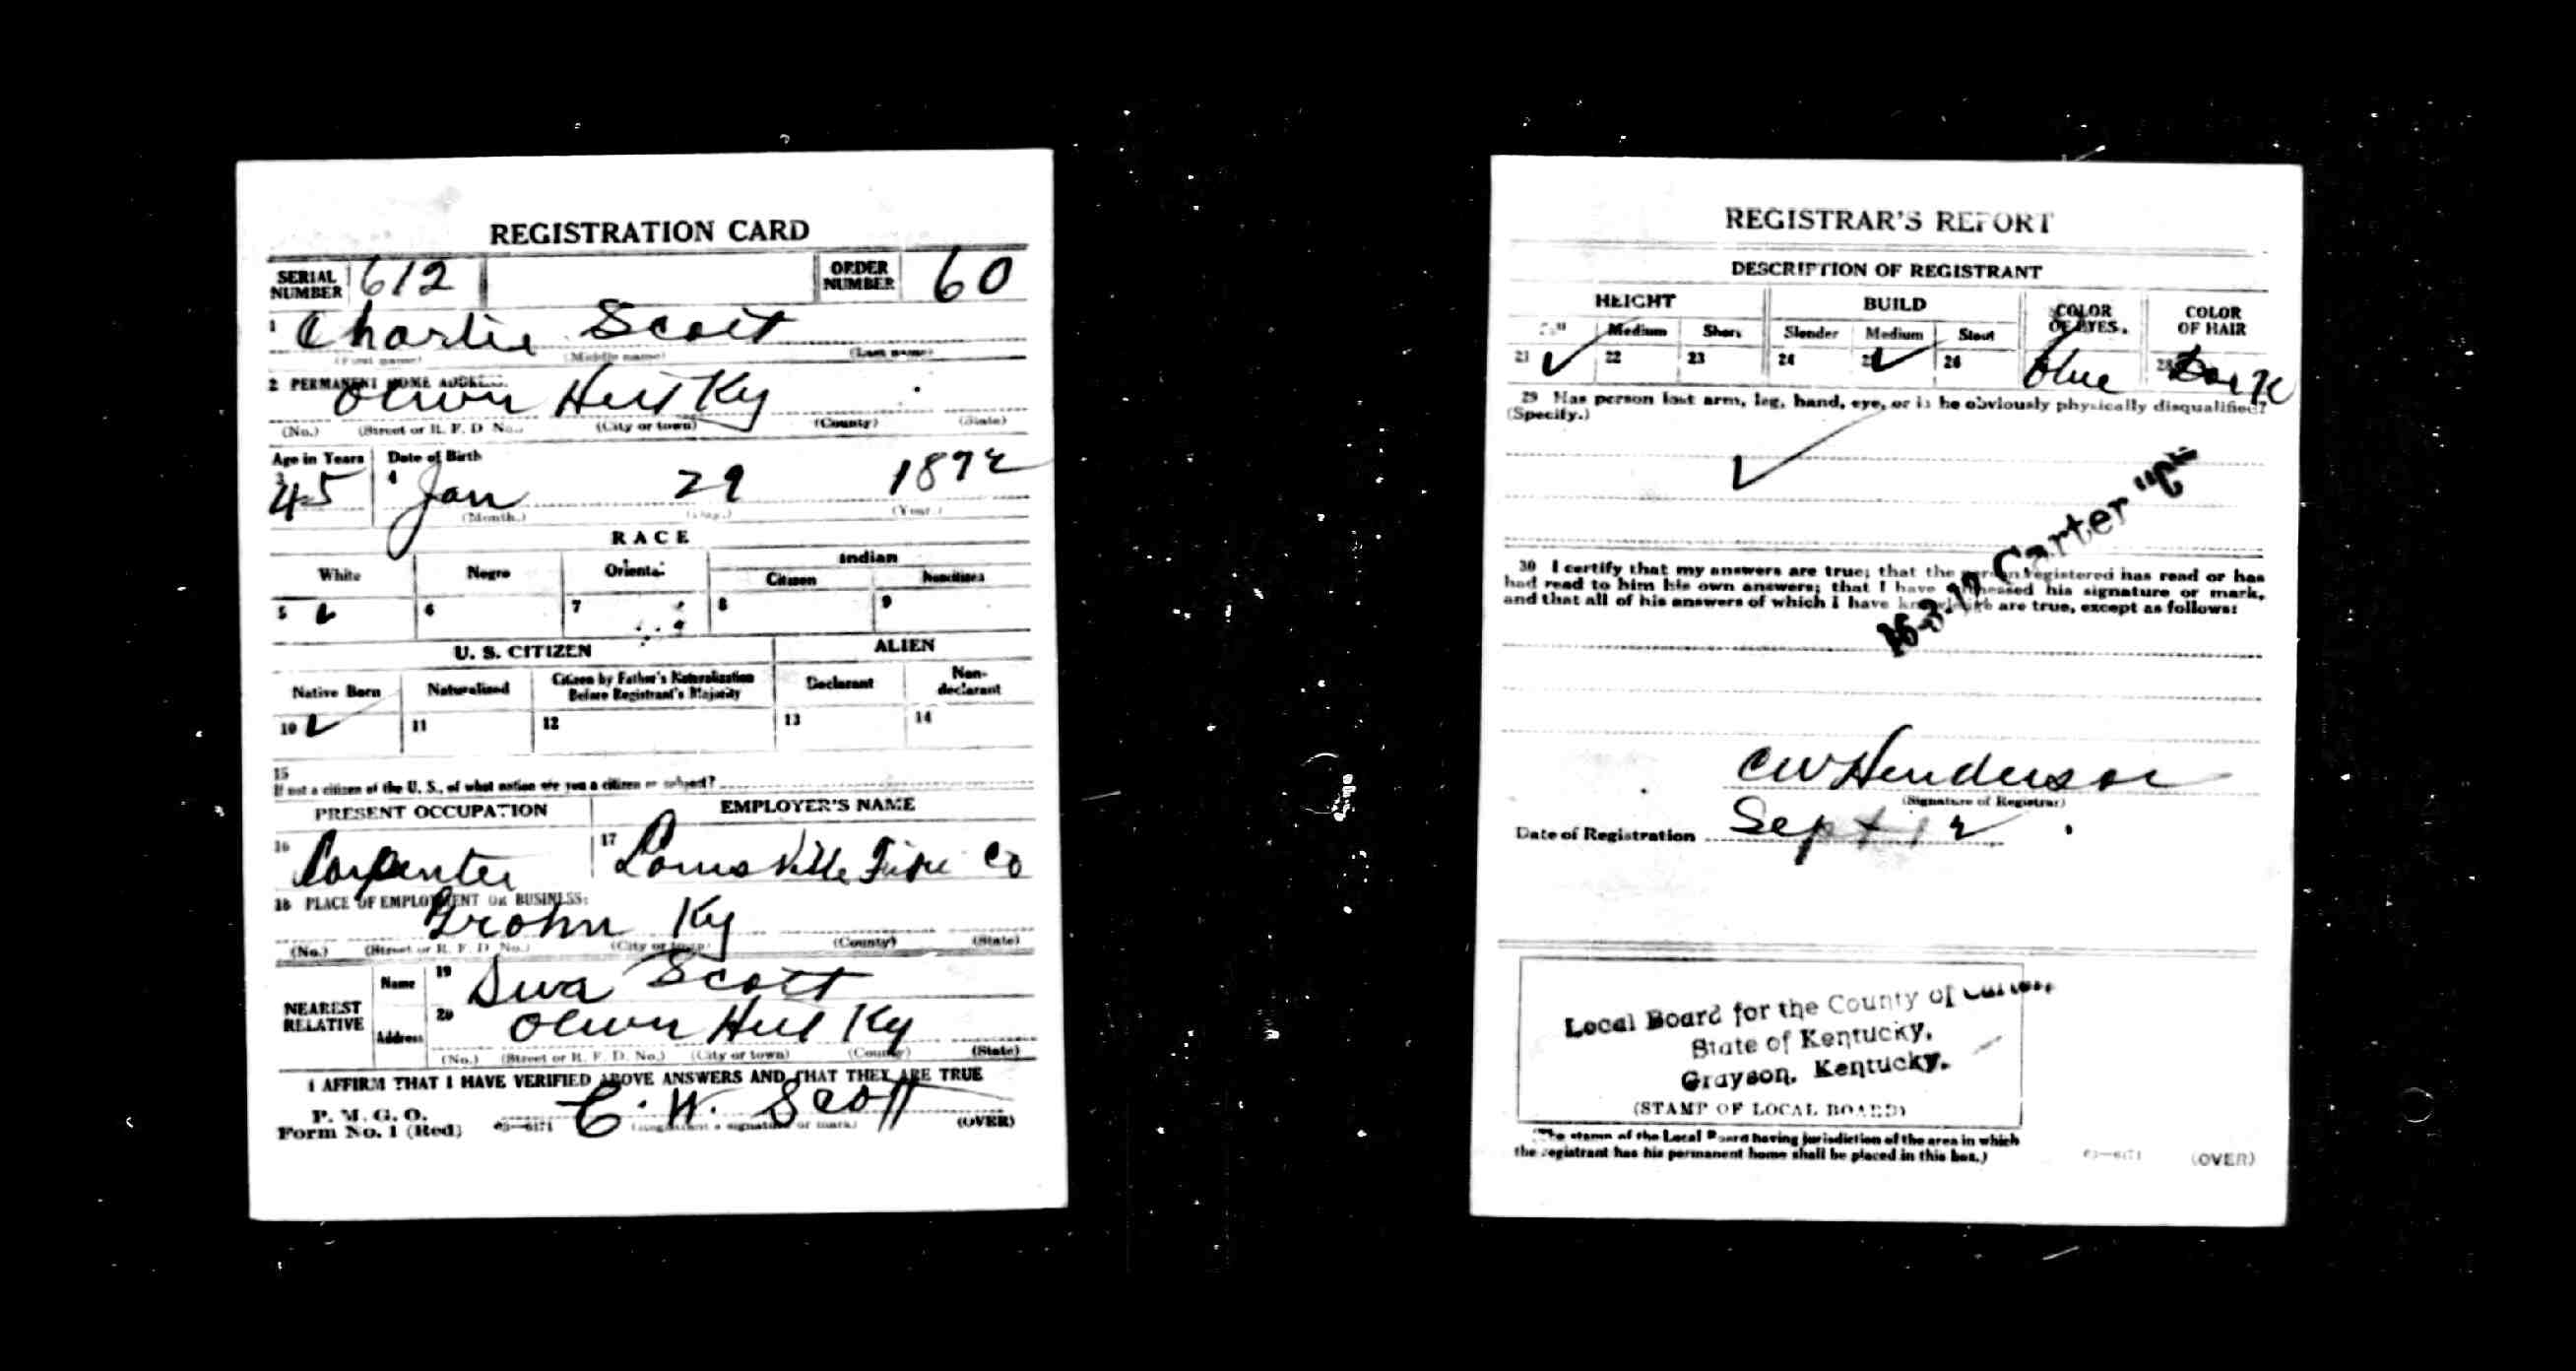 REGISTRATION CARD
SERIAL NUMBER 612 ORDER NUMBER 60
1 Charlie Scott
(First name) (Middle name) (Last name)
2 PERMANENT HOME ADDRESS:
Olive Hill Ky
(No.) (Street or R. F. D. No.) (City or town) (County) (State)
Age in Years Date of Birth
3 45 4 Jan 29 1872
(Month.) (Day.) (Year.)
RACE
White Negro Oriental Indian
Citizen Noncitizen
5 ✓ 6 7 8 9
U. S. CITIZEN ALIEN
Native Born Naturalized Citizen by Father's Naturalization Before Registrant's Majority Declarant Non-declarant
10 ✓ 11 12 13 14
15
If not a citizen of the U. S., of what nation are you a citizen or subject?
PRESENT OCCUPATION EMPLOYER'S NAME
16 Carpenter 17 Louisville Fire Co
18 PLACE OF EMPLOYMENT OR BUSINESS:
Grahn Ky
(No.) (Street or R. F. D. No.) (City or town) (County) (State)
NEAREST RELATIVE
Name 19 Scott
Address 20 Olive Hill Ky
(No.) (Street or R. F. D. No.) (City or town) (County) (State)
I AFFIRM THAT I HAVE VERIFIED ABOVE ANSWERS AND THAT THEY ARE TRUE
P. M. G. O.
Form No. 1 (Red) 03—6171 C. W. Scott (OVER)
(Registrant's signature or mark)
REGISTRAR'S REPORT
DESCRIPTION OF REGISTRANT
HEIGHT BUILD COLOR OF EYES. COLOR OF HAIR
Tall Medium Short Slender Medium Stout
21 ✓ 22 23 24 25 ✓ 26 27 blue 28 Dark
29 Has person lost arm, leg, hand, eye, or is he obviously physically disqualified?
(Specify.)
✓
30 I certify that my answers are true; that the person registered has read or has
had read to him his own answers; that I have witnessed his signature or mark,
and that all of his answers of which I have knowledge are true, except as follows:
16-3-17 Carter "C"
C W Henderson
(Signature of Registrar)
Date of Registration Sept 12
Local Board for the County of Carter,
State of Kentucky,
Grayson, Kentucky.
(STAMP OF LOCAL BOARD)
(The stamp of the Local Board having jurisdiction of the area in which
the registrant has his permanent home shall be placed in this box.)
03—6171 (OVER)